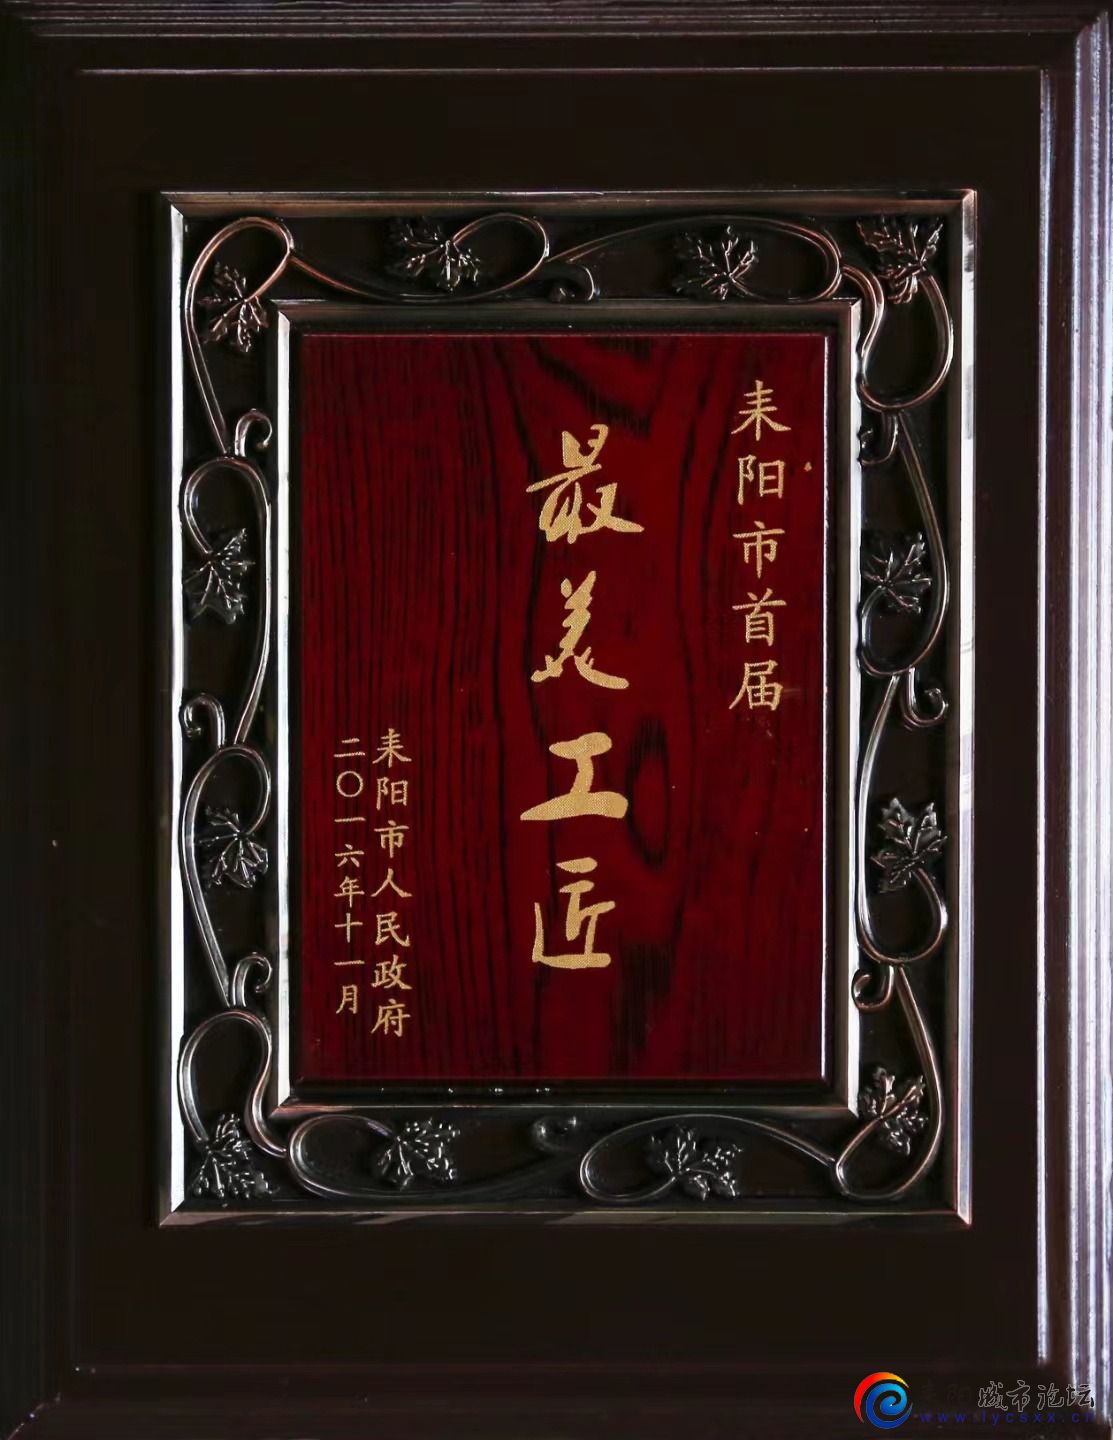 耒阳市首届
最美工匠
耒阳市人民政府
二〇一六年十一月
耒阳城市论坛
www.lycsxx.cn